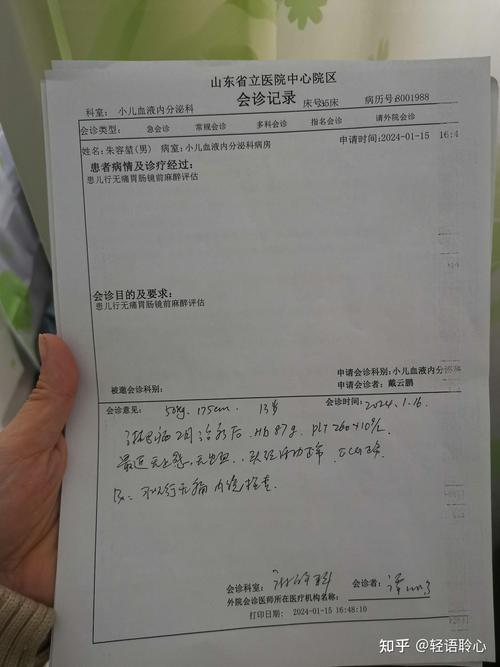 山东省立医院中心院区
会诊记录
科室: 小儿血液内分泌科 床号35床 病历号8001988
会诊类型: 急会诊 常规会诊 多科会诊 指名会诊 请外院会诊
申请时间:2024-01-15 16:4
姓名:朱容堃(男) 病室:小儿血液内分泌科病房
患者病情及诊疗经过:
患儿行无痛胃肠镜前麻醉评估
会诊目的及要求:
患儿行无痛胃肠镜前麻醉评估
申请会诊科别:小儿血液内分泌科
被邀会诊科别: 申请会诊者:戴云鹏
会诊意见: 50kg. 175cm. 13岁 会诊时间: 2024.1.16.
2月治疗后. Hb 87g. PLT 260×10⁹/L
最近无上感, 无出血, 活动正常. ECG正常
可以行无痛内镜检查.
会诊科室: 会诊者:
外院会诊医师所在医疗机构名称:
打印日期: 2024-01-15 16:48:10
知乎 @轻语聆心